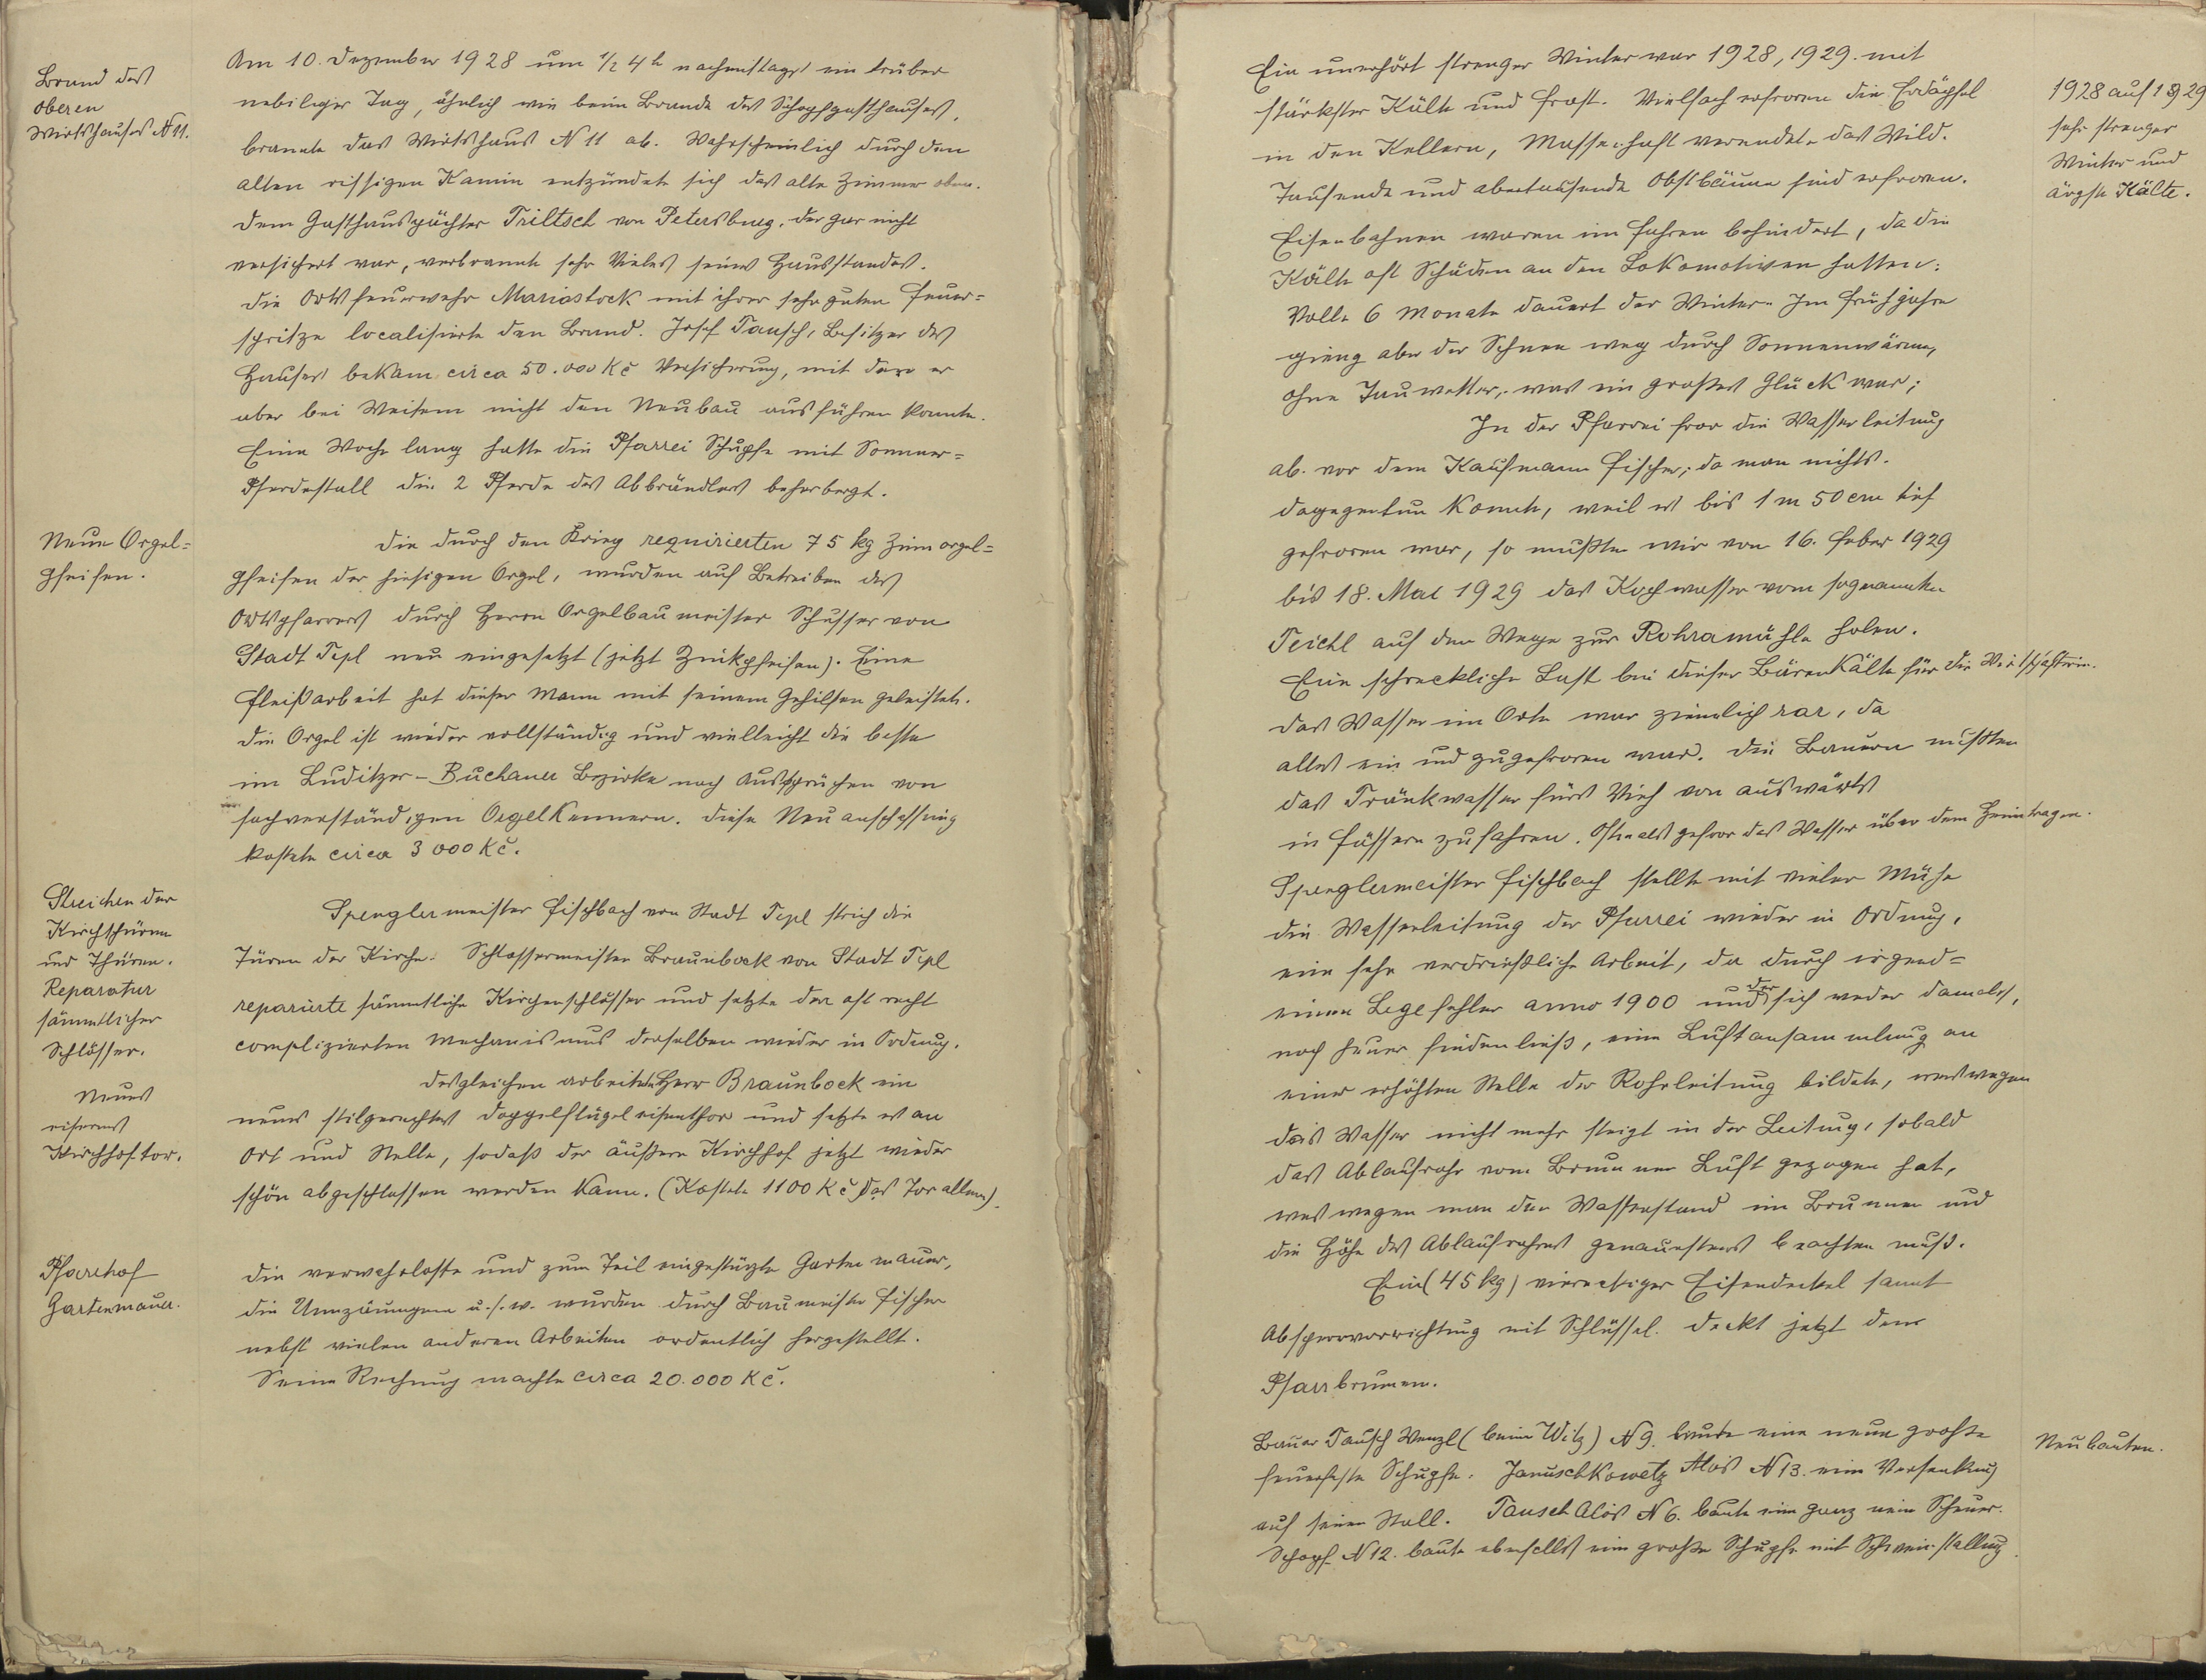 Brand des
oberen
Wirtshauses N 11.
Am 10. Dezember 1928 um 1/2 4 h nachmittags ein trüber
nebeliger Tag, ähnlich wie beim Brande des Schopfgasthauses,
brannte das Wirtshaus N 11 ab. Wahrscheinlich durch den
alten rissigen Kamin entzündete sich das alte Zimmer oben.
Dem Gasthauspächter Triltsch von Petersburg, der gar nicht
versichert war, verbrannte sehr Vieles seines Hausstandes.
Die Ortsfeuerwehr Mariastock mit ihrer sehr guten Feuer=
spritze localisierte den Brand. Josef Tausch, Besitzer des
Hauses bekam circa 50.000 Kč Versicherung, mit der er
aber bei Weitem nicht den Neubau ausführen konnte.
Eine Woche lang hatte die Pfarrei Schupfe mit Sommer=
Pferdestall die 2 Pferde des Abbrändlers beherbergt.
Neue Orgel=
pfeifen.
Die durch den Krieg requirierten 75 kg Zinnorgel=
pfeifen der hiesigen Orgel, wurden auf Betreiben des
Ortspfarrers durch Herrn Orgelbaumeister Schusser von
Stadt Tepl neu eingesetzt (jetzt Zinkpfeifen). Eine
Fleißarbeit hat dieser Mann mit seinem Gehilfen geleistet.
Die Orgel ist wieder vollständig und vielleicht die beste
im Luditzer-Buchauer Bezirke nach Aussprüchen von
sachverständigen Orgelkennern. Diese Neuanschaffung
kostete circa 3000 Kč.
Streichen der
Kirchthüren
und Thüren.
Reparatur
sämmtlicher
Schlösser.
Spenglermeister Fischbach von Stadt Tepl strich die
Türen der Kirche. Schlossermeister Braunbock von Stadt Tepl
reparierte sämmtliche Kirchenschlösser und setzte den oft recht
complizierten Mechanismus derselben wieder in Ordnung.
Neues
eisernes
Kirchhoftor.
Desgleichen arbeitete Herr Braunbock ein
neues stilgerechtes Doppelflügeleisenthor und setzte es an
Ort und Stelle, sodaß der äußere Kirchhof jetzt wieder
schön abgeschlossen werden kann. (Kostete 1100 Kč das Tor allein).
Pfarrhof
Gartenmauer.
Die verwahrloste und zum Teil eingestürzte Gartenmauer,
die Umzäunungen u.s.w. wurden durch Baumeister Fischer
nebst vielen anderen Arbeiten ordentlich hergestellt.
Seine Rechnung machte circa 20.000 Kč.
Ein unerhört strenger Winter war 1928, 1929. mit
stärkster Kälte und Frost. Vielfach erfroren die Erdäpfel
in den Kellern, Massenhaft verendete das Wild.
Tausende und abertausende Obstbäume sind erfroren.
Eisenbahnen waren im Fahren behindert, da die
Kälte oft Schäden an den Lokomotiven hatten.
Volle 6 Monate dauert der Winter. Im Frühjahre
gieng aber der Schnee weg durch Sonnenwärme,
ohne Tauwetter, was ein großes Glück war;
1928 auf 1929
sehr strenger
Winter und
ärgste Kälte.
In der Pfarrei fror die Wasserleitung
ab. vor dem Kaufmann Fischer; da man nichts
dagegentun konnte, weil es bis 1 m 50 cm tief
gefroren war, so mußten wir von 16. Feber 1929
bis 18. Mai 1929 das Kochwasser vom sogenannten
Teichl auf dem Wege zur Rohramühle holen.
Eine schreckliche Last bei dieser Bärenkälte für die Wirtschafterin.
Das Wasser im Orte war ziemlich rar, da
alles ein und zugefroren war. Die Bauern mußten
das Tränkwasser fürs Vieh von auswärts
in Fässern zufahren. Oftmals gefror das Wasser über dem Heimtragen.
Spenglermeister Fischbach stellte mit vieler Mühe
die Wasserleitung der Pfarrei wieder in Ordnung,
eine sehr verdrießliche Arbeit, da durch irgend=
einen Legefehler anno 1900 und der sich weder damals,
noch heuer finden ließ, eine Luftansammlung an
einer erhöhten Stelle der Rohrleitung bildete, weswegen
das Wasser nicht mehr steigt in der Leitung, sobald
das Ablaufrohr vom Brunnen Luft gezogen hat,
weswegen man den Wasserstand im Brunnen und
die Höhe des Ablaufrohres genauestens beachten muß.
Ein (45 kg) viereckiger Eisendeckel samt
Absperrvorrichtung mit Schlüssel. deckt jetzt den
Pfarrbrunnen.
Bauer Tausch Wenzl (beim Witz) N 9. baute eine neue große
feuerfeste Schupfe. Januschkowetz Alois N 13. eine Versenkung
auf seinen Stall. Tausch Alois N 6. baute eine ganz neue Scheuer.
Schopf N 12. baute ebenfalls eine große Schupfe mit Schweinstallung.
Neubauten.